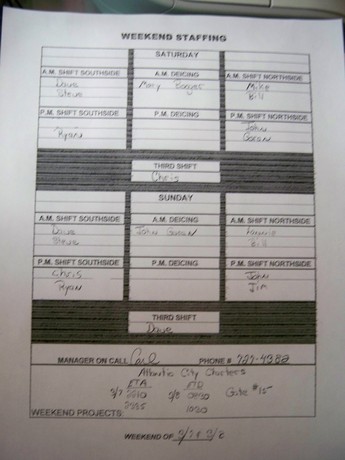 WEEKEND STAFFING
SATURDAY
A.M. SHIFT SOUTHSIDE A.M. DEICING A.M. SHIFT NORTHSIDE
Dave Mary Mike
Steve Bill
P.M. SHIFT SOUTHSIDE P.M. DEICING P.M. SHIFT NORTHSIDE
Ryan John
THIRD SHIFT
Chris
SUNDAY
A.M. SHIFT SOUTHSIDE A.M. DEICING A.M. SHIFT NORTHSIDE
Dave John
Steve Bill
P.M. SHIFT SOUTHSIDE P.M. DEICING P.M. SHIFT NORTHSIDE
Chris John
Ryan Jim
THIRD SHIFT
Dave
MANAGER ON CALL Carl PHONE # 727-4382
Atlantic City Charters
ETA ETD
3/7 3/8 Gate #15
WEEKEND PROJECTS:
WEEKEND OF 3/7 & 3/8